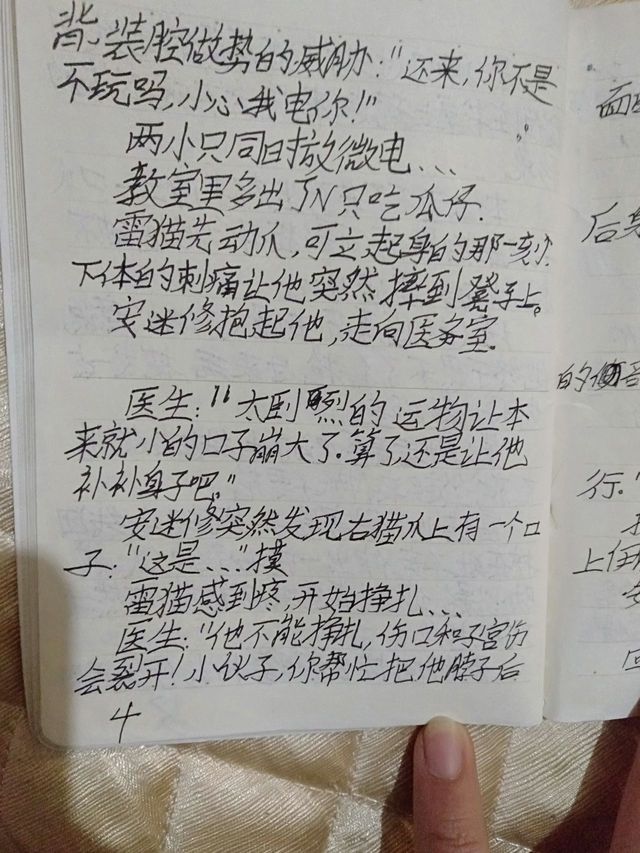 背,装腔做势的威胁:"还来,你不是
不玩吗,小心我电你!"
两小只同时放微电...
教室里多出了N只吃瓜仔.
雷猫先动爪,可立起身的那一刻,
下体的刺痛让他突然摔到凳子上。
安迷修抱起他,走向医务室.
医生:"太剧烈的运物让本
来就小的口子崩大了.算了还是让他
补补身子吧。"
安迷修突然发现右猫爪上有一个口
子:"这是..."摸
雷猫感到疼,开始挣扎...
医生:"他不能挣扎,伤口和子宫伤
会裂开!小伙子,你帮忙把他脖子后
4
面
后
的
行."
上
回